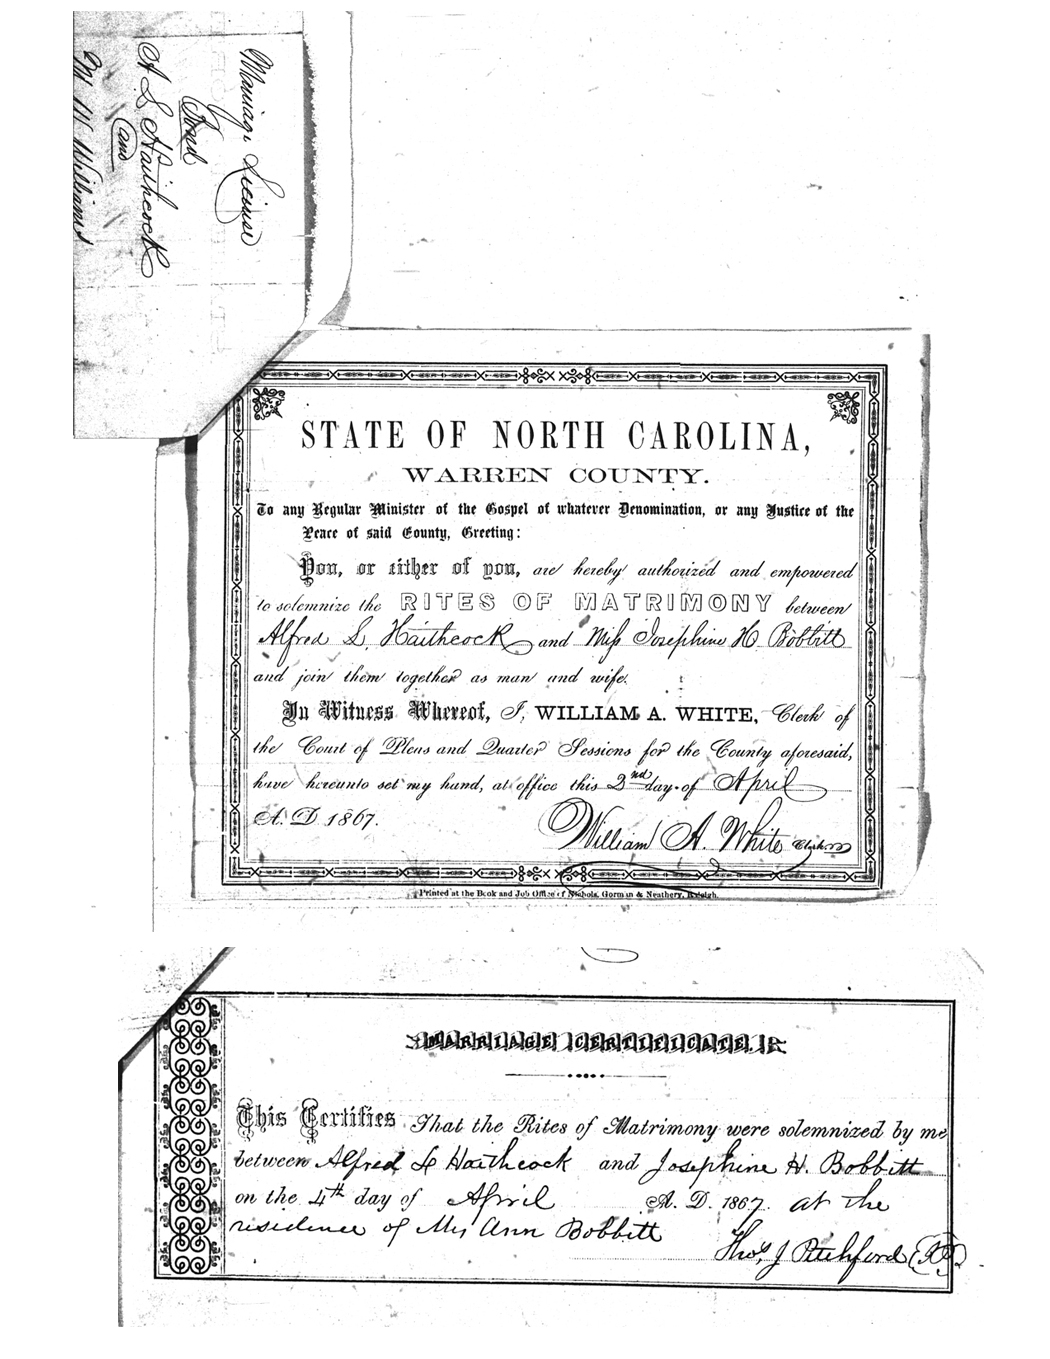 Marriage License
Bond
A. L. Haithcock
and
M. W. Williams
STATE OF NORTH CAROLINA,
WARREN COUNTY.
To any Regular Minister of the Gospel of whatever Denomination, or any Justice of the
Peace of said County, Greeting:
You, or either of you, are hereby authorized and empowered
to solemnize the RITES OF MATRIMONY between
Alfred L. Haithcock and Miss Josephine H. Bobbitt
and join them together as man and wife.
In Witness Whereof, I, WILLIAM A. WHITE, Clerk of
the Court of Pleas and Quarter Sessions for the County aforesaid,
have hereunto set my hand, at office this 2nd day of April
A. D. 1867.
William A. White Clerk
Printed at the Book and Job Office of Nichols, Gorman & Neathery, Raleigh.
MARRIAGE CERTIFICATE.
This Certifies That the Rites of Matrimony were solemnized by me
between Alfred L Haithcock and Josephine H. Bobbitt
on the 4th day of April A. D. 1867. at the
residence of Mrs Ann Bobbitt
Thos. J Pitchford